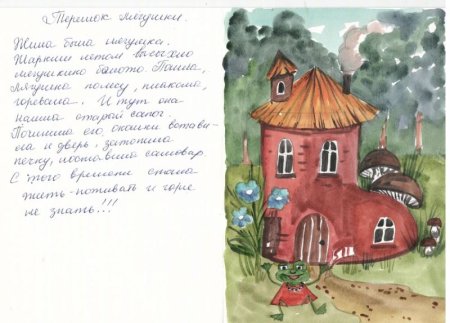 Теремок лягушки.
Жила была лягушка.
Жарким летом высохло
лягушкино болото. Пошла,
Лягушка по лесу, плакала,
горевала. И тут она
нашла старый сапог.
Починила его, окошки встави-
ла и дверь, затопила
печку, поставила самовар.
С этого времени стала
жить-поживать и горе
не знать!!!